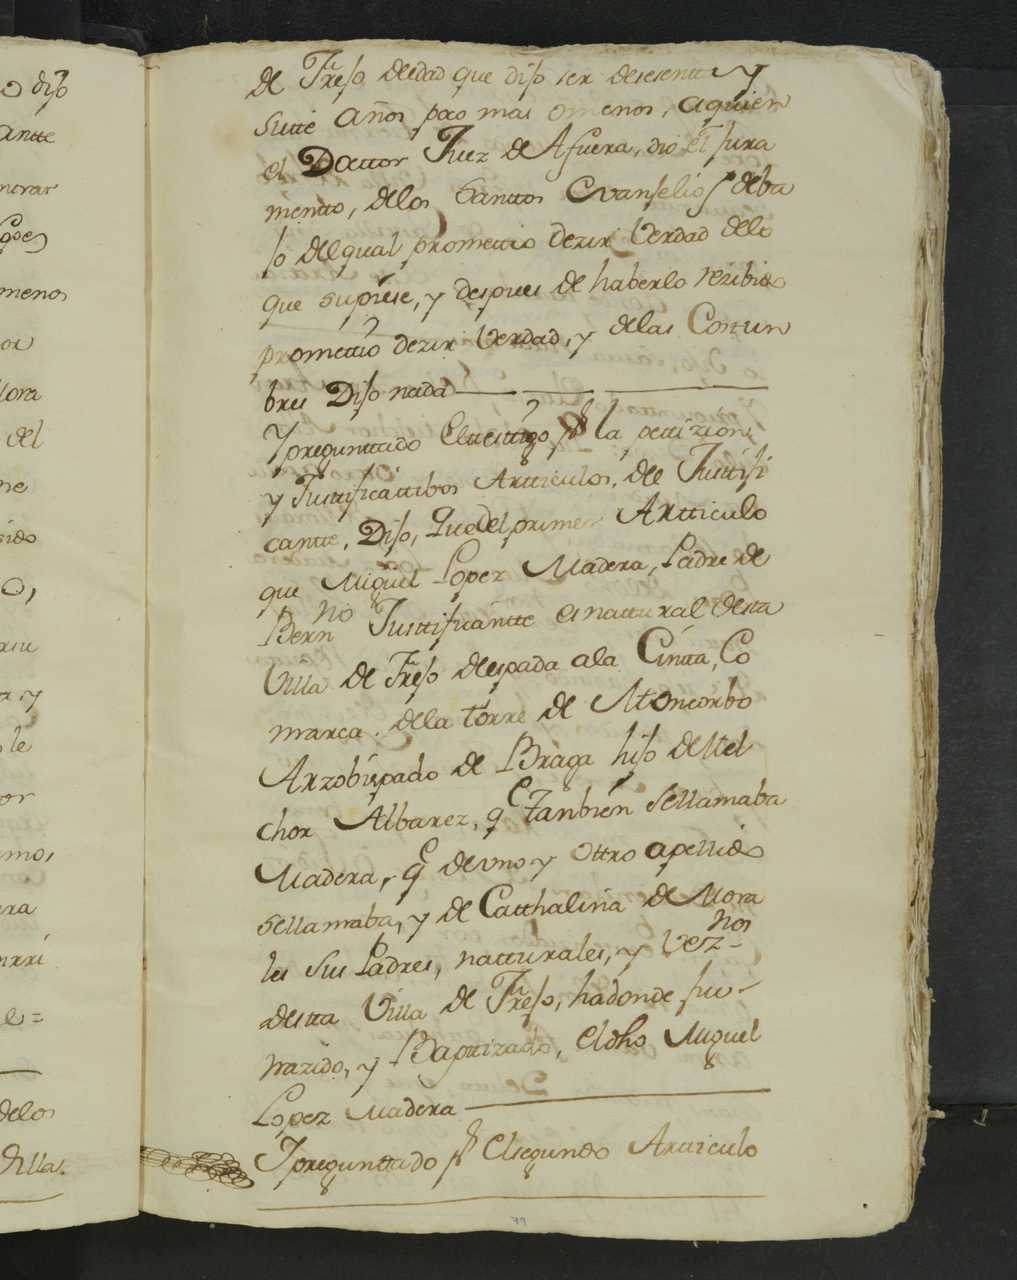 o dijo
antte
ncrar
Lopes
menos
or
lora
del
ne
sido
o,
riu
a, y
le
or
mos,
ara
nrri
e=
delos
dilla.
de Frejo deedad que dijo ser desesentta y
siette años poco mas omenos, aquien
el Doctor Juez de Afuera, dio el jura
mentto, delos Santtos Evanjelios deba
jo delqual promettio dezir Verdad delo
que supiese, y despues de haberlo rezibido
promettio dezir Verdad, y delas Costun
bres Dijo nada
Ypreguntado Elttesttigo pr la pettizion,
y Justtificattibos Artticulos, del Justtifi
cantte, Dijo, Quedelprimer Artticulo
que Miguel Lopez Madera, Padre de
Bernno Justtificantte es nattural desta
Villa de Frejo deespada ala Cintta, Co
marca dela torre de Moncorbo
Arzobispado de Braga hijo de Mel
chor Albarez, qe Tanbien sellamaba
Madera, qe de uno y ottro apellido
sellamaba, y de Catthalina de Mora
les sus Padres, natturales, y veznos
destta Villa de Frejo, hadonde fue
nazido, y Bapttizado, eldho Miguel
Lopez Madera
Ypregunttado pr Elsegundo Artticulo
79